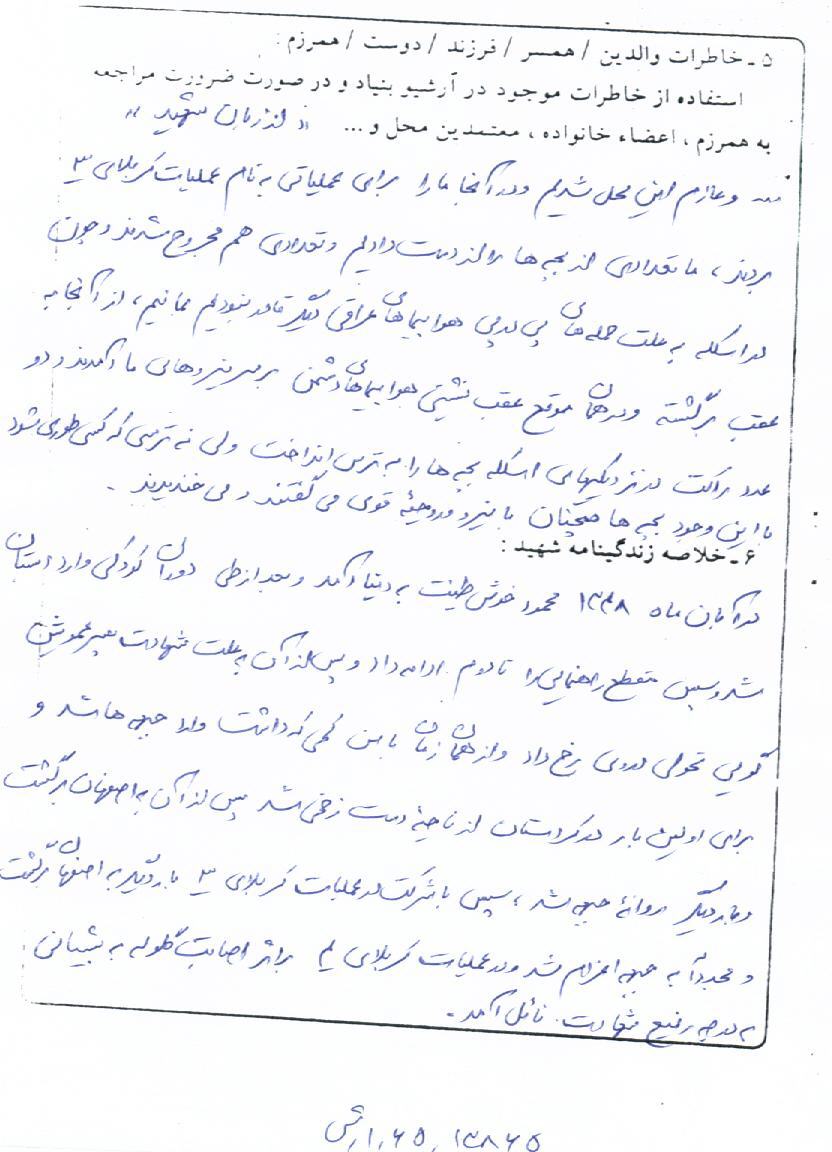 ۵ ـ خاطرات والدین / همسر / فرزند / دوست / همرزم :
استفاده از خاطرات موجود در آرشیو بنیاد و در صورت ضرورت مراجعه
به همرزم ، اعضاء خانواده ، معتمدین محل و ... « از زبان شهید »
و عازم این محل شدیم و در آنجا ما را برای عملیاتی به نام عملیات کربلای ۳
بردند ، ما تعدادی از بچه ها را از دست دادیم و تعدادی هم مجروح شدند و چون
در اسکله به علت حمله های پی در پی هواپیماهای عراقی دیگر قادر نبودیم بمانیم ، از آنجا به
عقب برگشته و در همان موقع عقب نشینی هواپیماهای دشمن بر سر نیروهای ما آمدند و دو
عدد راکت در نزدیکیهای اسکله بچه ها را به ترس انداخت ولی نه ترسی که کسی طوری شود
با این وجود بچه ها همچنان با نیرو و روحیهٔ قوی می گفتند و می خندیدند .
۶ ـ خلاصه زندگینامه شهید :
در آبان ماه ۱۳۴۸ محمود خوش طینت به دنیا آمد و بعد از طی دوران کودکی وارد دبستان
شد و سپس مقطع راهنمایی را تا دوم ادامه داد و پس از آن به علت شهادت پسر عمویش
گویی تحولی در وی رخ داد و از همان زمان با سن کمی که داشت وارد جبهه ها شد و
برای اولین بار در کردستان از ناحیهٔ دست زخمی شد پس از آن به اصفهان برگشت
و بار دیگر روانهٔ جبهه شد ، سپس با شرکت در عملیات کربلای ۳ بار دیگر به اصفهان برگشت
و مجدداً به جبهه اعزام شد و در عملیات کربلای ۴ بر اثر اصابت گلوله به پیشانی
به درجه رفیع شهادت نائل آمد .